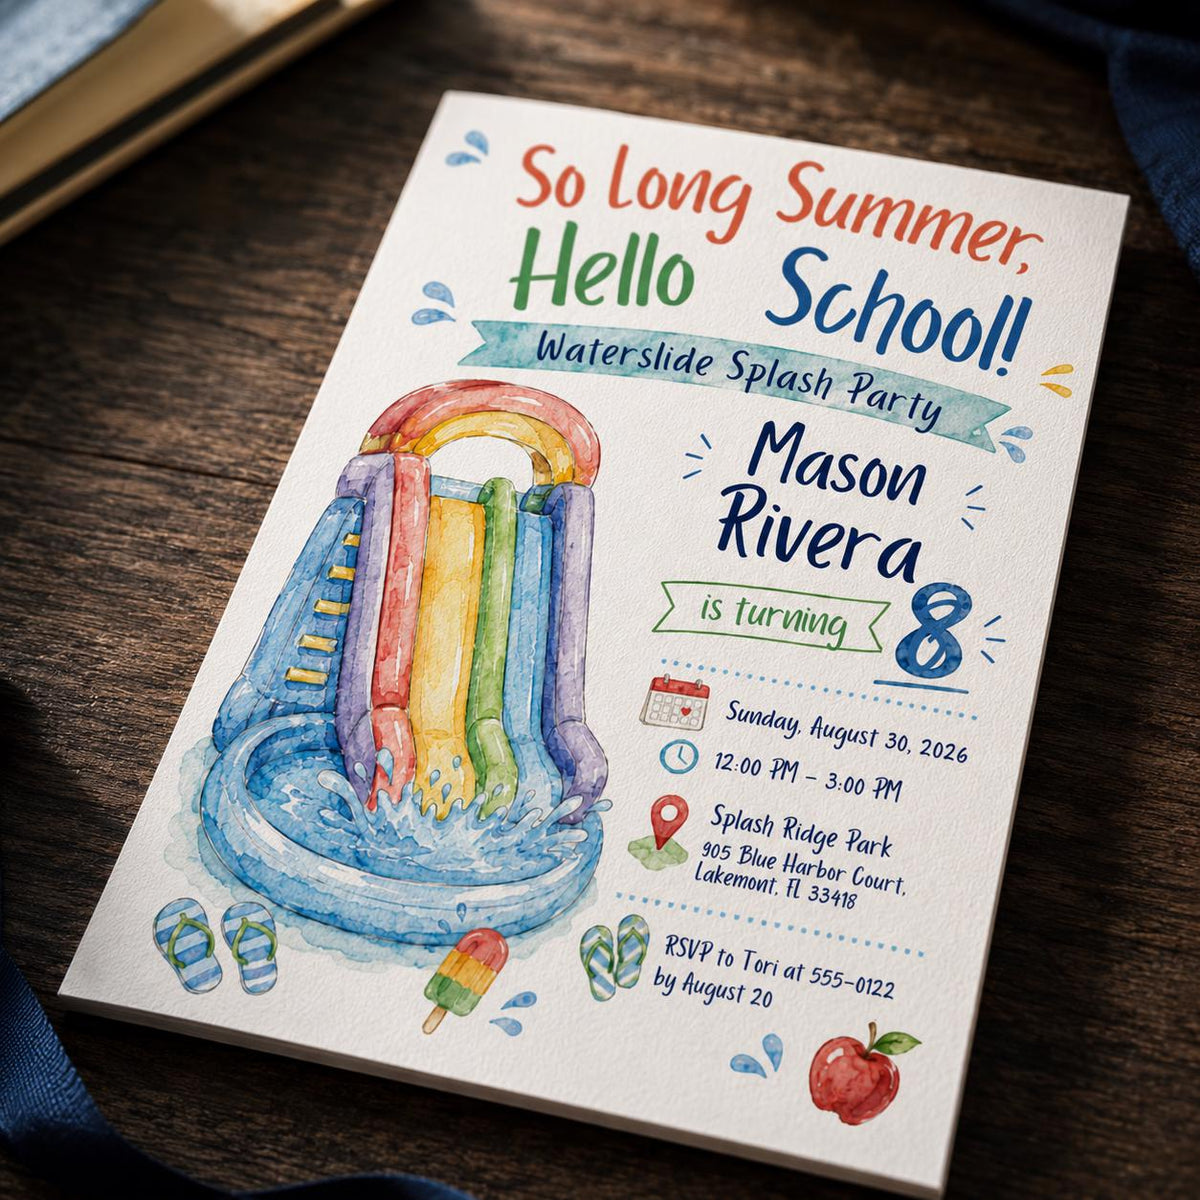 So Long Summer,
Hello School!
Waterslide Splash Party
Mason
Rivera
is turning 8
Sunday, August 30, 2026
12:00 PM – 3:00 PM
Splash Ridge Park
905 Blue Harbor Court,
Lakemont, FL 33418
RSVP to Tori at 555-0122
by August 20